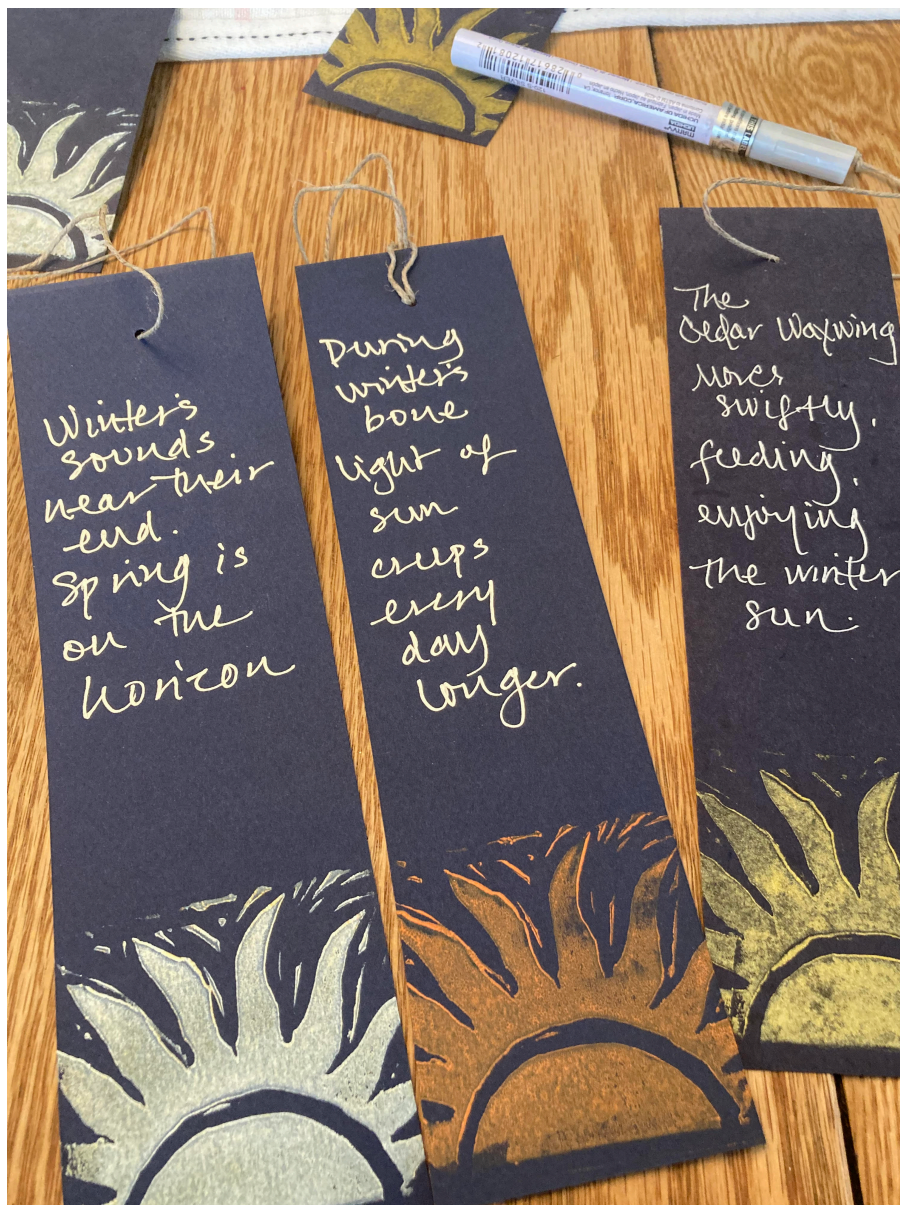 Winter's
sounds
near their
end.
Spring is
on the
horizon
During
winter's
bone
light of
sun
creeps
every
day
longer.
The
Cedar Waxwing
moves
swiftly,
feeding,
enjoying
the winter
sun.
marvy
UCHIDA
UCHIDA OF AMERICA, CORP.